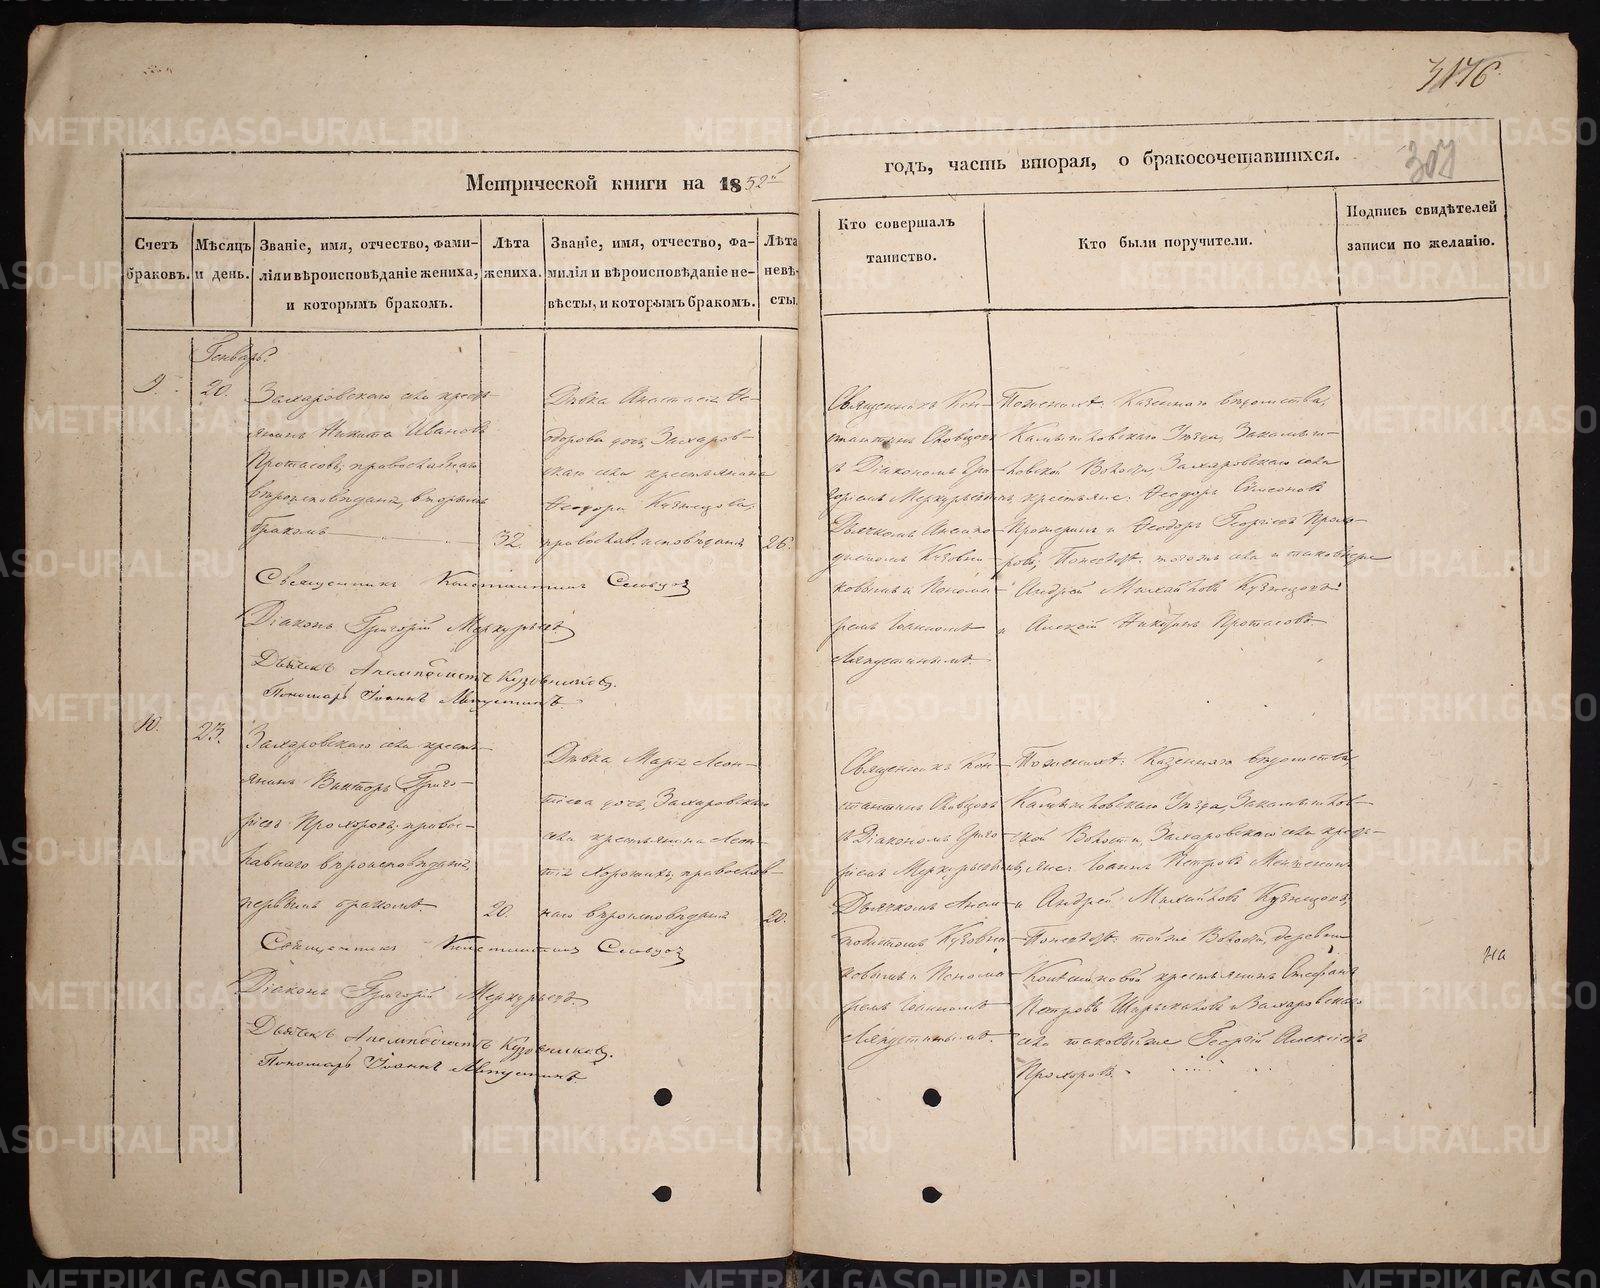 3176
307
Метрической книги на 1852й
годъ, часть вторая, о бракосочетавшихся.
Счетъ браковъ.
Мѣсяцъ и день.
Званіе, имя, отчество, фами-
лія и вѣроисповѣданіе жениха,
и которымъ бракомъ.
Лѣта
жениха.
Званіе, имя, отчество, фа-
милія и вѣроисповѣданіе не-
вѣсты, и которымъ бракомъ.
Лѣта
невѣ-
сты.
Кто совершалъ
таинство.
Кто были поручители.
Подпись свидѣтелей
записи по желанію.
Генварь.
9.
20.
Захаровскаго села кресть-
янинъ Никита Ивановъ
Протасовъ, православнаго
вѣроисповѣданія, вторымъ
бракомъ
32.
Дѣвка Анастасія Ѳе-
дорова дочь, Захаров-
скаго села крестьянина
Ѳеодора Кузнецова,
православ. исповѣданія
26.
Священникъ Кон-
стантинъ Словцовъ
съ Діакономъ Гри-
горіемъ Меркурьевымъ,
Дьячкомъ
Кузовни-
ковымъ и Понома-
ремъ Іоанномъ
Ляпустинымъ.
По женихѣ: Казеннаго вѣдомства,
Камышловскаго Уѣзда, Закамыш-
ловской Волости, Захаровскаго села
крестьяне: Ѳеодоръ Симеоновъ
и Ѳеодоръ Георгіевъ Прохо-
ровъ; По невѣстѣ: тогожъ села и таковыеже
Андрей Михайловъ Кузнецовъ
и Алексій Никитинъ Протасовъ.
Священникъ Константинъ Словцовъ
Діаконъ Григорій Меркурьевъ
Дьячекъ Кузовниковъ.
Пономарь Іоаннъ Ляпустинъ.
10.
23.
Захаровскаго села кресть-
янинъ Викторъ Григо-
рьевъ Прохоровъ, правос-
лавнаго вѣроисповѣданія,
первымъ бракомъ.
20.
Дѣвка Марія Леон-
тіева дочь, Захаровскаго
села крестьянина Леон-
тія Хорошихъ, православ-
наго вѣроисповѣданія
20.
Священникъ Кон-
стантинъ Словцовъ
съ Діакономъ Григо-
ріемъ Меркурьевымъ,
Дьячкомъ
Кузовни-
ковымъ и Понома-
ремъ Іоанномъ
Ляпустинымъ.
По женихѣ: Казеннаго вѣдомства,
Камышловскаго Уѣзда, Закамышлов-
ской Волости, Захаровскаго села кресть-
яне: Іоаннъ Петровъ
и Андрей Михайловъ Кузнецовъ;
По невѣстѣ: тойже Волости, деревни
крестьянинъ Стефанъ
Петровъ и Захаровскаго
села таковыйже Георгій Алексіевъ
Прохоровъ.
на
Священникъ Константинъ Словцовъ
Діаконъ Григорій Меркурьевъ
Дьячекъ Кузовниковъ.
Пономарь Іоаннъ Ляпустинъ.
METRIKI.GASO-URAL.RU